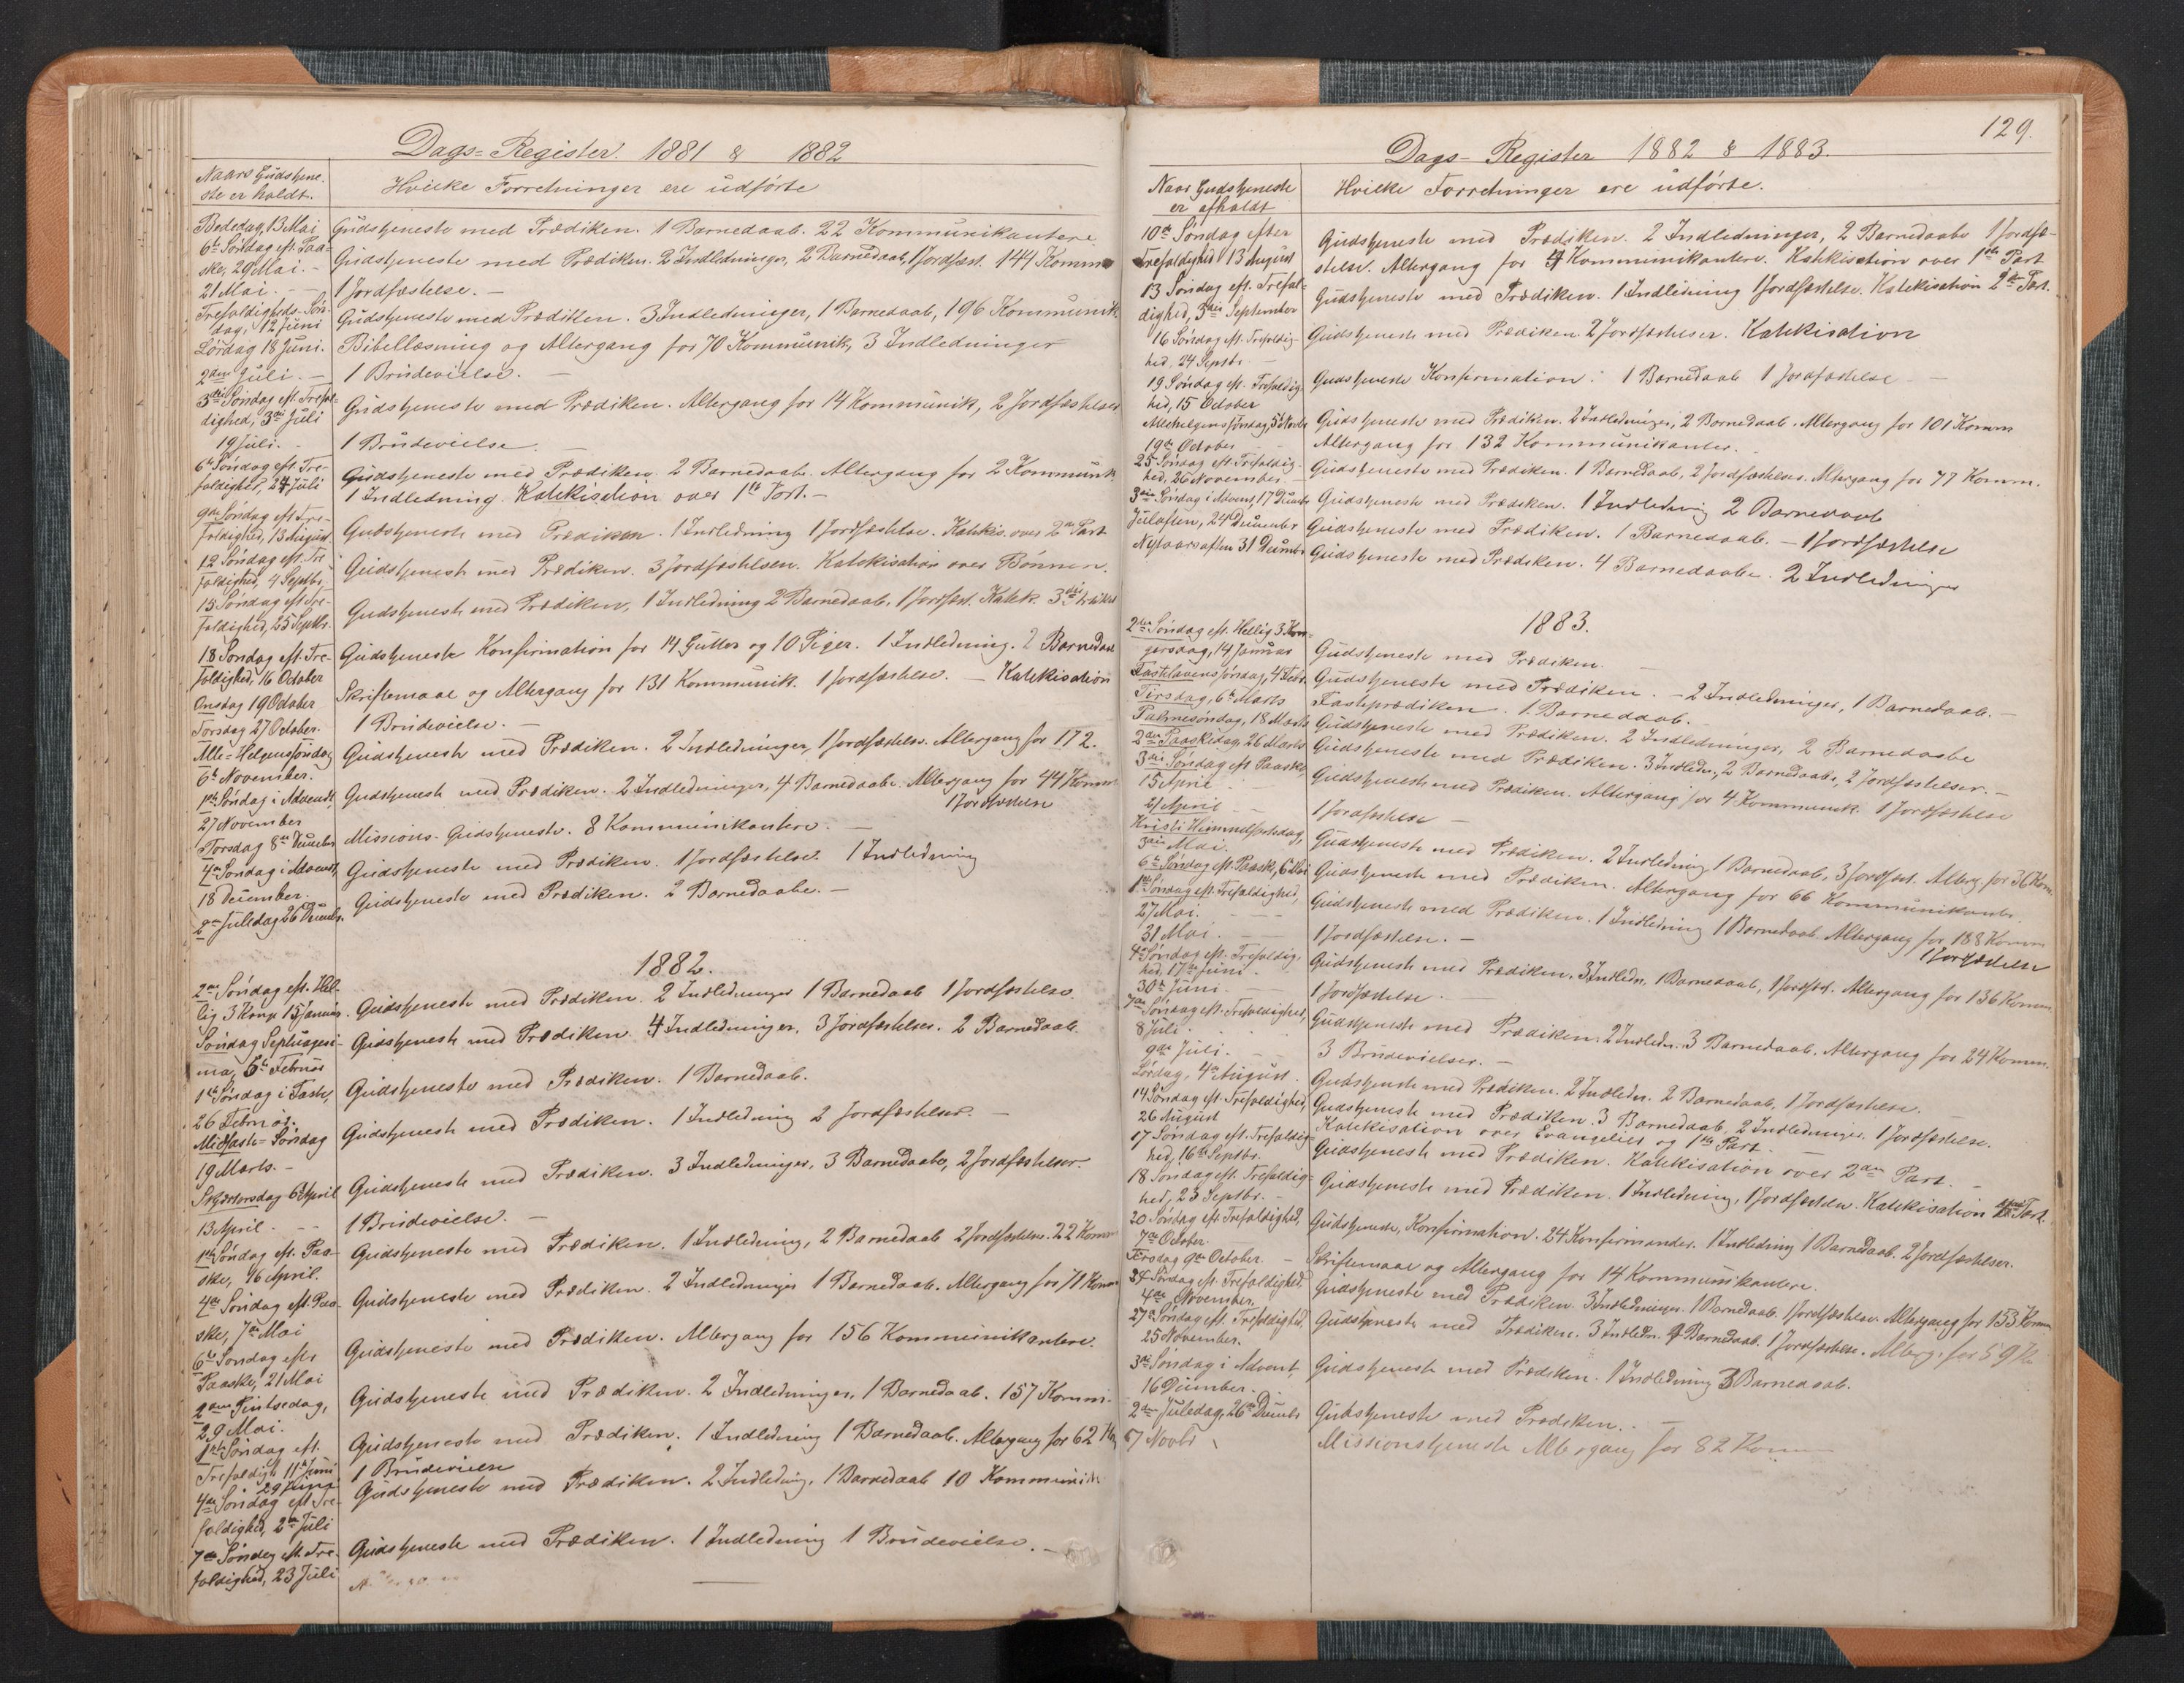 Dags-Register 1881 & 1882
Naar Gudstjene-
ste er holdt.
Hvilke Forretninger ere udførte
Bededag, 13 Mai Gudstjeneste med Prædiken. 1 Barnedaab. 22 Kommunikantere
6te Søndag eft. Paa-
ske, 29 Mai. - Gudstjeneste med Prædiken. 2 Indledninger, 2 Barnedaab, 1 Jordfæst. 144 Komm
21 Mai. - 1 Jordfæstelse. -
Trefoldigheds-Søn-
dag, 12 Juni Gudstjeneste med Prædiken. 3 Indledninger, 1 Barnedaab, 196 Kommunik
Lørdag 18 Juni. Bibellæsning og Altergang for 70 Kommunik, 3 Indledninger
2den Juli. - 1 Brudevielse. -
3die Søndag eft. Trefol-
dighed, 3die Juli Gudstjeneste med Prædiken. Altergang for 14 Kommunik, 2 Jordfæstelser
19 Juli. - 1 Brudevielse
6te Søndag eft. Tre-
foldighed, 24 Juli Gudstjeneste med Prædiken. 2 Barnedaab. Altergang for 2 Kommunik.
1 Indledning Katekisation over 1ste Part. -
9de Søndag eft. Tre-
foldighed, 13 August Gudstjeneste med Prædiken. 1 Indledning 1 Jordfæstelse. Katekis. over 2den Part
12 Søndag eft. Tre-
foldighed, 4 Septbr. Gudstjeneste med Prædiken. 3 Jordfæstelsen. Katekisation over Bønnen.
15 Søndag eft. Tre-
foldighed, 25 Septbr. Gudstjeneste med Prædiken, 1 Indledning 2 Barnedaab, 1 Jordfæst. Katek. 3die Artikel
18 Søndag eft. Tre-
foldighed, 16 October Gudstjeneste Konfirmation for 14 Gutter og 10 Piger. 1 Indledning. 2 Barnedaab
Onsdag 19 October Skriftemaal og Altergang for 131 Kommunik. 1 Jordfæstelse. - Katekisation
Torsdag 27 October. 1 Brudevielse. -
Alle-Helgensføndag
6te November. Gudstjeneste med Prædiken. 2 Indledninger, 1 Jordfæstelse. Altergang for 172.
1ste Søndag i Advendt
27 November Gudstjeneste med Prædiken. 2 Indledninger, 4 Barnedaabe. Altergang for 44 Komm
1 Jordfæstelse
Torsdag 8de December Missions-Gudstjeneste. 8 Kommunikantere. -
4de Søndag i Advent
18 December. Gudstjeneste med Prædiken. 1 Jordfæstelse. 1 Indledning
2den Juledag 26 Decembr. Gudstjeneste med Prædiken. 2 Barnedaabe. -
1882.
2den Søndag eft. Hel-
lig 3 Kong. 15 Januar. Gudstjeneste med Prædiken. 2 Indledninger 1 Barnedaab 1 Jordfæstelse.
Søndag Septuagesi-
ma, 5te Februar Gudstjeneste med Prædiken. 4 Indledninger, 3 Jordfæstelser. 2 Barnedaab.
1ste Søndag i Faste,
26 Februar. Gudstjeneste med Prædiken. 1 Barnedaab.
Midfaste-Søndag
19 Marts. - Gudstjeneste med Prædiken. 1 Indledning 2 Jordfæstelser. -
Skjærtorsdag 6 April Gudstjeneste med Prædiken. 3 Indledninger, 3 Barnedaabe, 2 Jordfæstelser.
13 April. - - 1 Brudevielse. -
1ste Søndag eft. Paa-
ske, 16 April. Gudstjeneste med Prædiken. 1 Indledning, 2 Barnedaab 2 Jordfæstelser. 22 Komm
4de Søndag eft. Paa-
ske, 7de Mai Gudstjeneste med Prædiken. 2 Indledninger 1 Barnedaab. Altergang for 71 Komm
6te Søndag efter
Paaske, 21 Mai Gudstjeneste med Prædiken. Altergang for 156 Kommunikantere.
2den Pintsedag,
29 Mai. Gudstjeneste med Prædiken. 2 Indledninger, 1 Barnedaab. 157 Komm.
1ste Søndag eft.
Trefoldigh. 11te Juni Gudstjeneste med Prædiken. 1 Indledning 1 Barnedaab. Altergang for 62 K
29 Juni 1 Brudevielse
4de Søndag eft Tre-
foldighed, 2den Juli Gudstjeneste med Prædiken. 2 Indledning, 1 Barnedaab 10 Kommunik
7de Søndag eft. Tre-
foldighed, 23 Juli Gudstjeneste med Prædiken. 1 Indledning 1 Brudevielse. -
129.
Dags-Register 1882 & 1883.
Naar Gudstjeneste
er afholdt
Hvilke Forretninger ere udførte.
10de Søndag efter
Trefoldighed 13 August Gudstjeneste med Prædiken. 2 Indledninger, 2 Barnedaabe 1 Jordfæ-
stelse. Altergang for 4 Kommunikantere. Katekisation over 1ste Part
13 Søndag eft. Trefol-
dighed, 3die September Gudstjeneste med Prædiken. 1 Indledning 1 Jordfæstelse. Katekisation 2den Part.
16 Søndag eft. Trefoldig-
hed, 24 Septbr. - Gudstjeneste med Prædiken. 2 Jordfæstelser. Katekisation
19 Søndag eft. Trefoldig-
hed, 15 October Gudstjeneste Konfirmation. 1 Barnedaab 1 Jordfæstelse -
Allehelgens søndag, 5te Novbr Gudstjeneste med Prædiken. 2 Indledninger, 2 Barnedaab. Altergang for 101 Komm
19de October Altergang for 132 Kommunikanter.
25 Søndag eft. Trefoldig-
hed, 26 November. - Gudstjeneste med Prædiken. 1 Barnedaab, 2 Jordfæstelser. Altergang for 77 Komm.
3die Søndag i Advent, 17 Decembr Gudstjeneste med Prædiken. 1 Indledning 2 Barnedaab
Juleaften, 24de December Gudstjeneste med Prædiken. 1 Barnedaab. - 1 Jordfæstelse
Nytaarsaften 31 Decembr Gudstjeneste med Prædiken. 4 Barnedaabe. 2 Indledninger
1883.
2den Søndag eft. Hellig 3 Kon-
gersdag, 14 Januar Gudstjeneste med Prædiken. -
Fastelavenssøndag, 4 Febr. Gudstjeneste med Prædiken. - 2 Indledninger, 1 Barnedaab. -
Tirsdag, 6te Marts Fasteprædiken. 1 Barnedaab. -
Palmesøndag, 18 Marts Gudstjeneste med Prædiken. 2 Indledninger, 2 Barnedaabe
2den Paaskedag, 26 Marts Gudstjeneste med Prædiken. 3 Indledn., 2 Barnedaab, 2 Jordfæstelser. -
3die Søndag eft Paaske,
15 April - Gudstjeneste med Prædiken. Altergang for 4 Kommunik. 1 Jordfæstelse
21 April - - 1 Jordfæstelse -
Kristi Himmelfartsdag,
3die Mai. Gudstjeneste med Prædiken. 2 Indledning 1 Barnedaab, 3 Jordfæst. Alterg. for 36 Kom
6te Søndag eft. Paaske, 6 Mai Gudstjeneste med Prædiken. Altergang for 66 Kommunikanter.
1ste Søndag eft. Trefoldighed,
27 Mai. - - Gudstjeneste med Prædiken. 1 Indledning 1 Barnedaab. Altergang for 188 Komm
1 Jordfæstelse
31 Mai. - - 1 Jordfæstelse. -
4de Søndag eft. Trefoldig-
hed, 17de Juni. - Gudstjeneste med Prædiken. 3 Indledn, 1 Barnedaab, 1 Jordfæst. Altergang for 136 Komm.
30te Juni. - - 1 Jordfæstelse. -
7de Søndag eft. Trefoldighed,
8 Juli. Gudstjeneste med Prædiken. 2 Indledn. 3 Barnedaab. Altergang for 24 Komm.
9de Juli. - - 3 Brudevielser. -
Lørdag, 4de August. Gudstjeneste med Prædiken. 2 Indledn. 2 Barnedaab, 1 Jordfæstelse. -
14 Søndag eft. Trefoldighed,
26 August Gudstjeneste med Prædiken 3 Barnedaab, 2 Indledninger. 1 Jordfæstelse.
Katekisation over Evangeliet og 1ste Part.
17 Søndag eft. Trefoldig-
hed, 16te Septbr. Gudstjeneste med Prædiken. Katekisation over 2den Part. -
18 Søndag eft. Trefoldig-
hed, 23 Septbr. - Gudstjeneste med Prædiken. 1 Indledning, 1 Jordfæstelse. Katekisation Part.
20 Søndag eft. Trefoldighed,
7de October. Gudstjeneste, Konfirmation. 24 Konfirmander. 1 Indledning 1 Barnedaab. 2 Jordfæstelser.
Tirsdag 9de October. - Skriftemaal og Altergang for 14 Kommunikantere.
24 Søndag eft. Trefoldighed,
4de November. Gudstjeneste med Prædiken. 3 Indledninger. 1 Barnedaab. 1 Jordfæstelse. Altergang for 153 Komm
27de Søndag eft. Trefoldighed,
25 November. Gudstjeneste med Prædiken. 3 Indledn. Barnedaab. 1 Jordfæstelse. Alterg. for 59 K
3die Søndag i Advent,
16 December. Gudstjeneste med Prædiken. 1 Indledning 3 Barnedaab.
2den Juledag, 26de Decembr Gudstjeneste med Prædiken. -
7 Novbr Missionstjeneste Altergang for 82 Kom